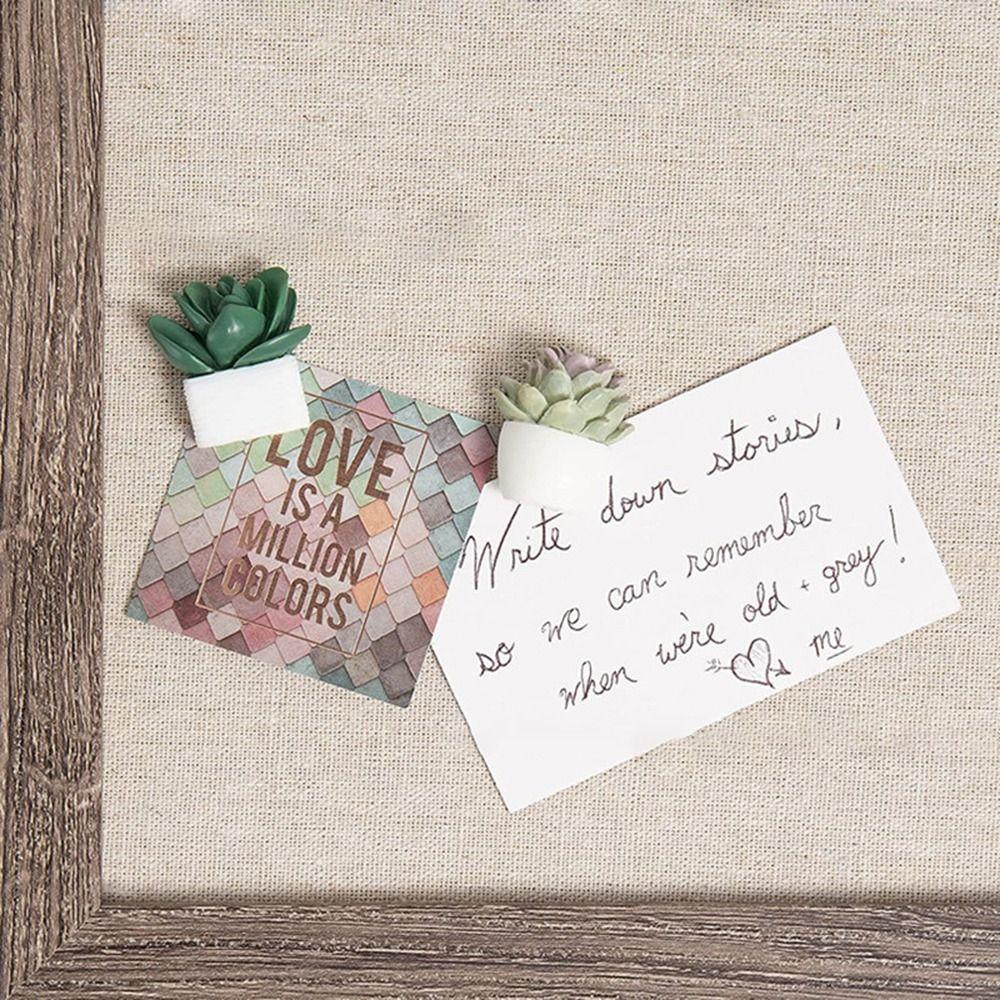 LOVE
IS A
MILLION
COLORS
Write down stories,
so we can remember
when we're old + grey!
me